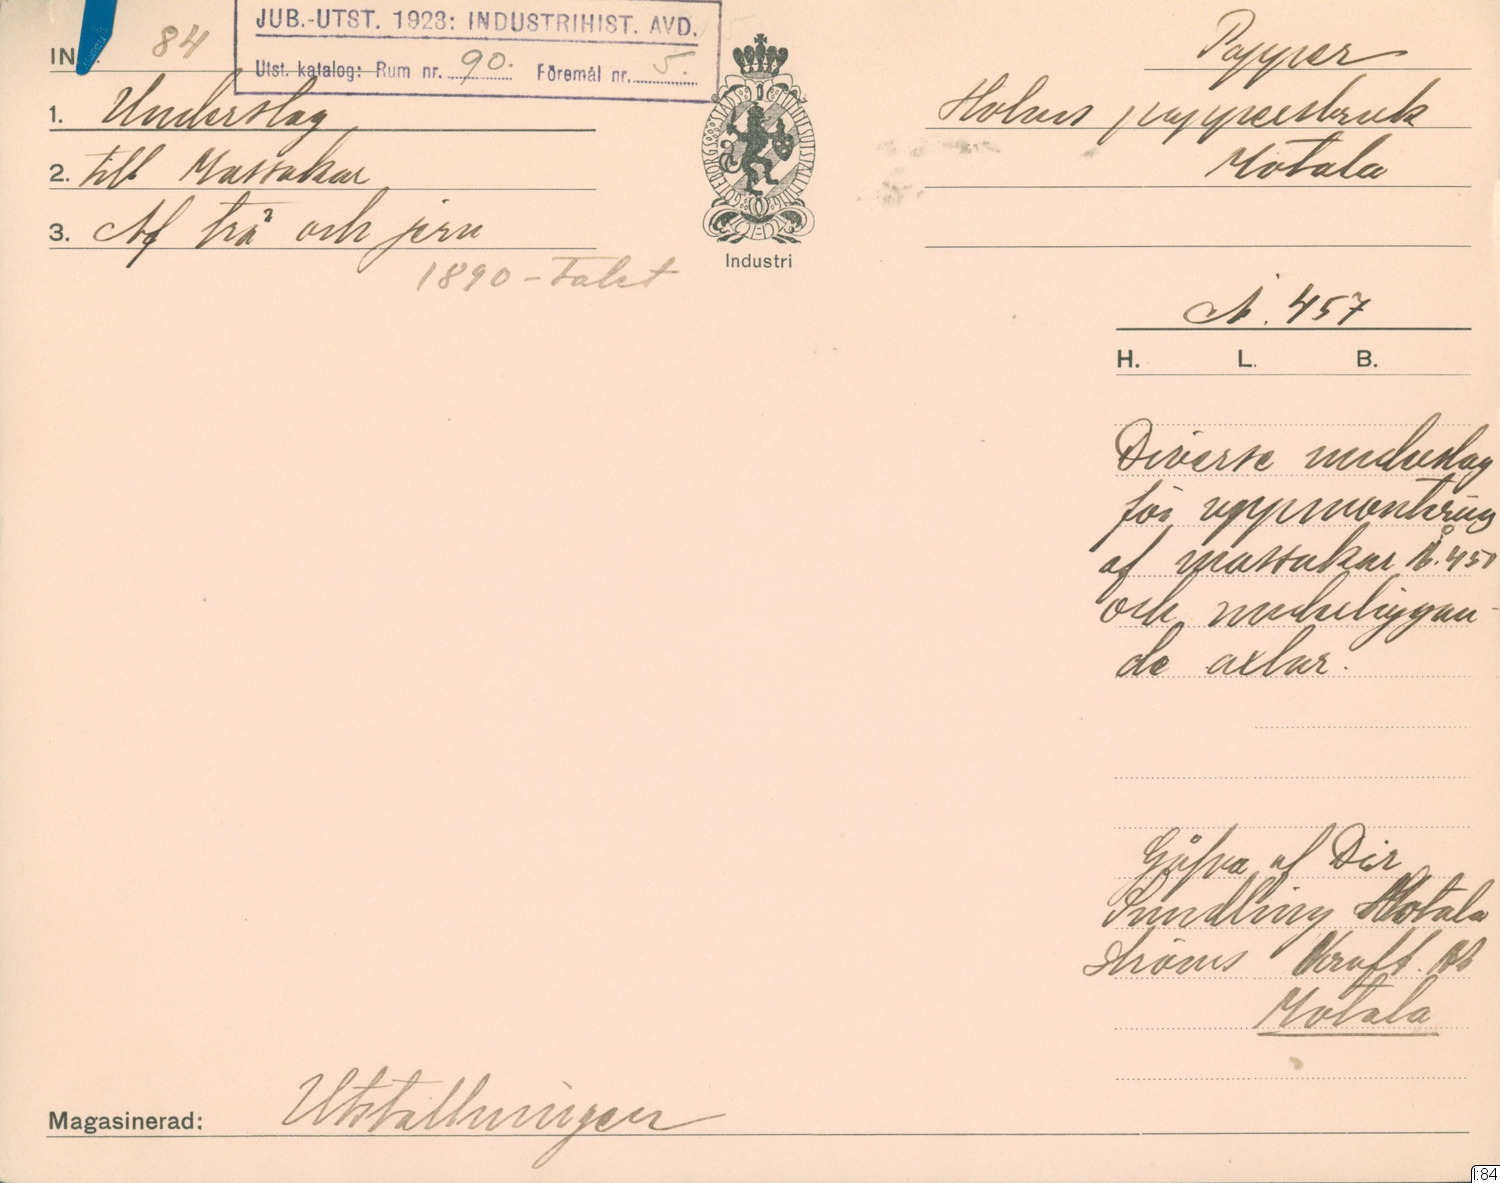 JUB.-UTST. 1923: INDUSTRIHIST. AVD.
Utst. katalog: Rum nr. 90. Föremål nr. 5.
IN 84
1. Underslag
2. till Massakar
3. Af trä och jern
1890-Talet
GÖTEBORGS STADS MINNESUTSTÄLLNING
Industri
Papper
Holms pappersbruk
Motala
N. 457
H. L. B.
Diverse underslag
för uppmontering
af massakar No. 450
och underliggan-
de axlar.
Gåfva af Dir
Sundling Motala
Ströms Kraft. AB
Motala
Magasinerad: Utställningen
I:84